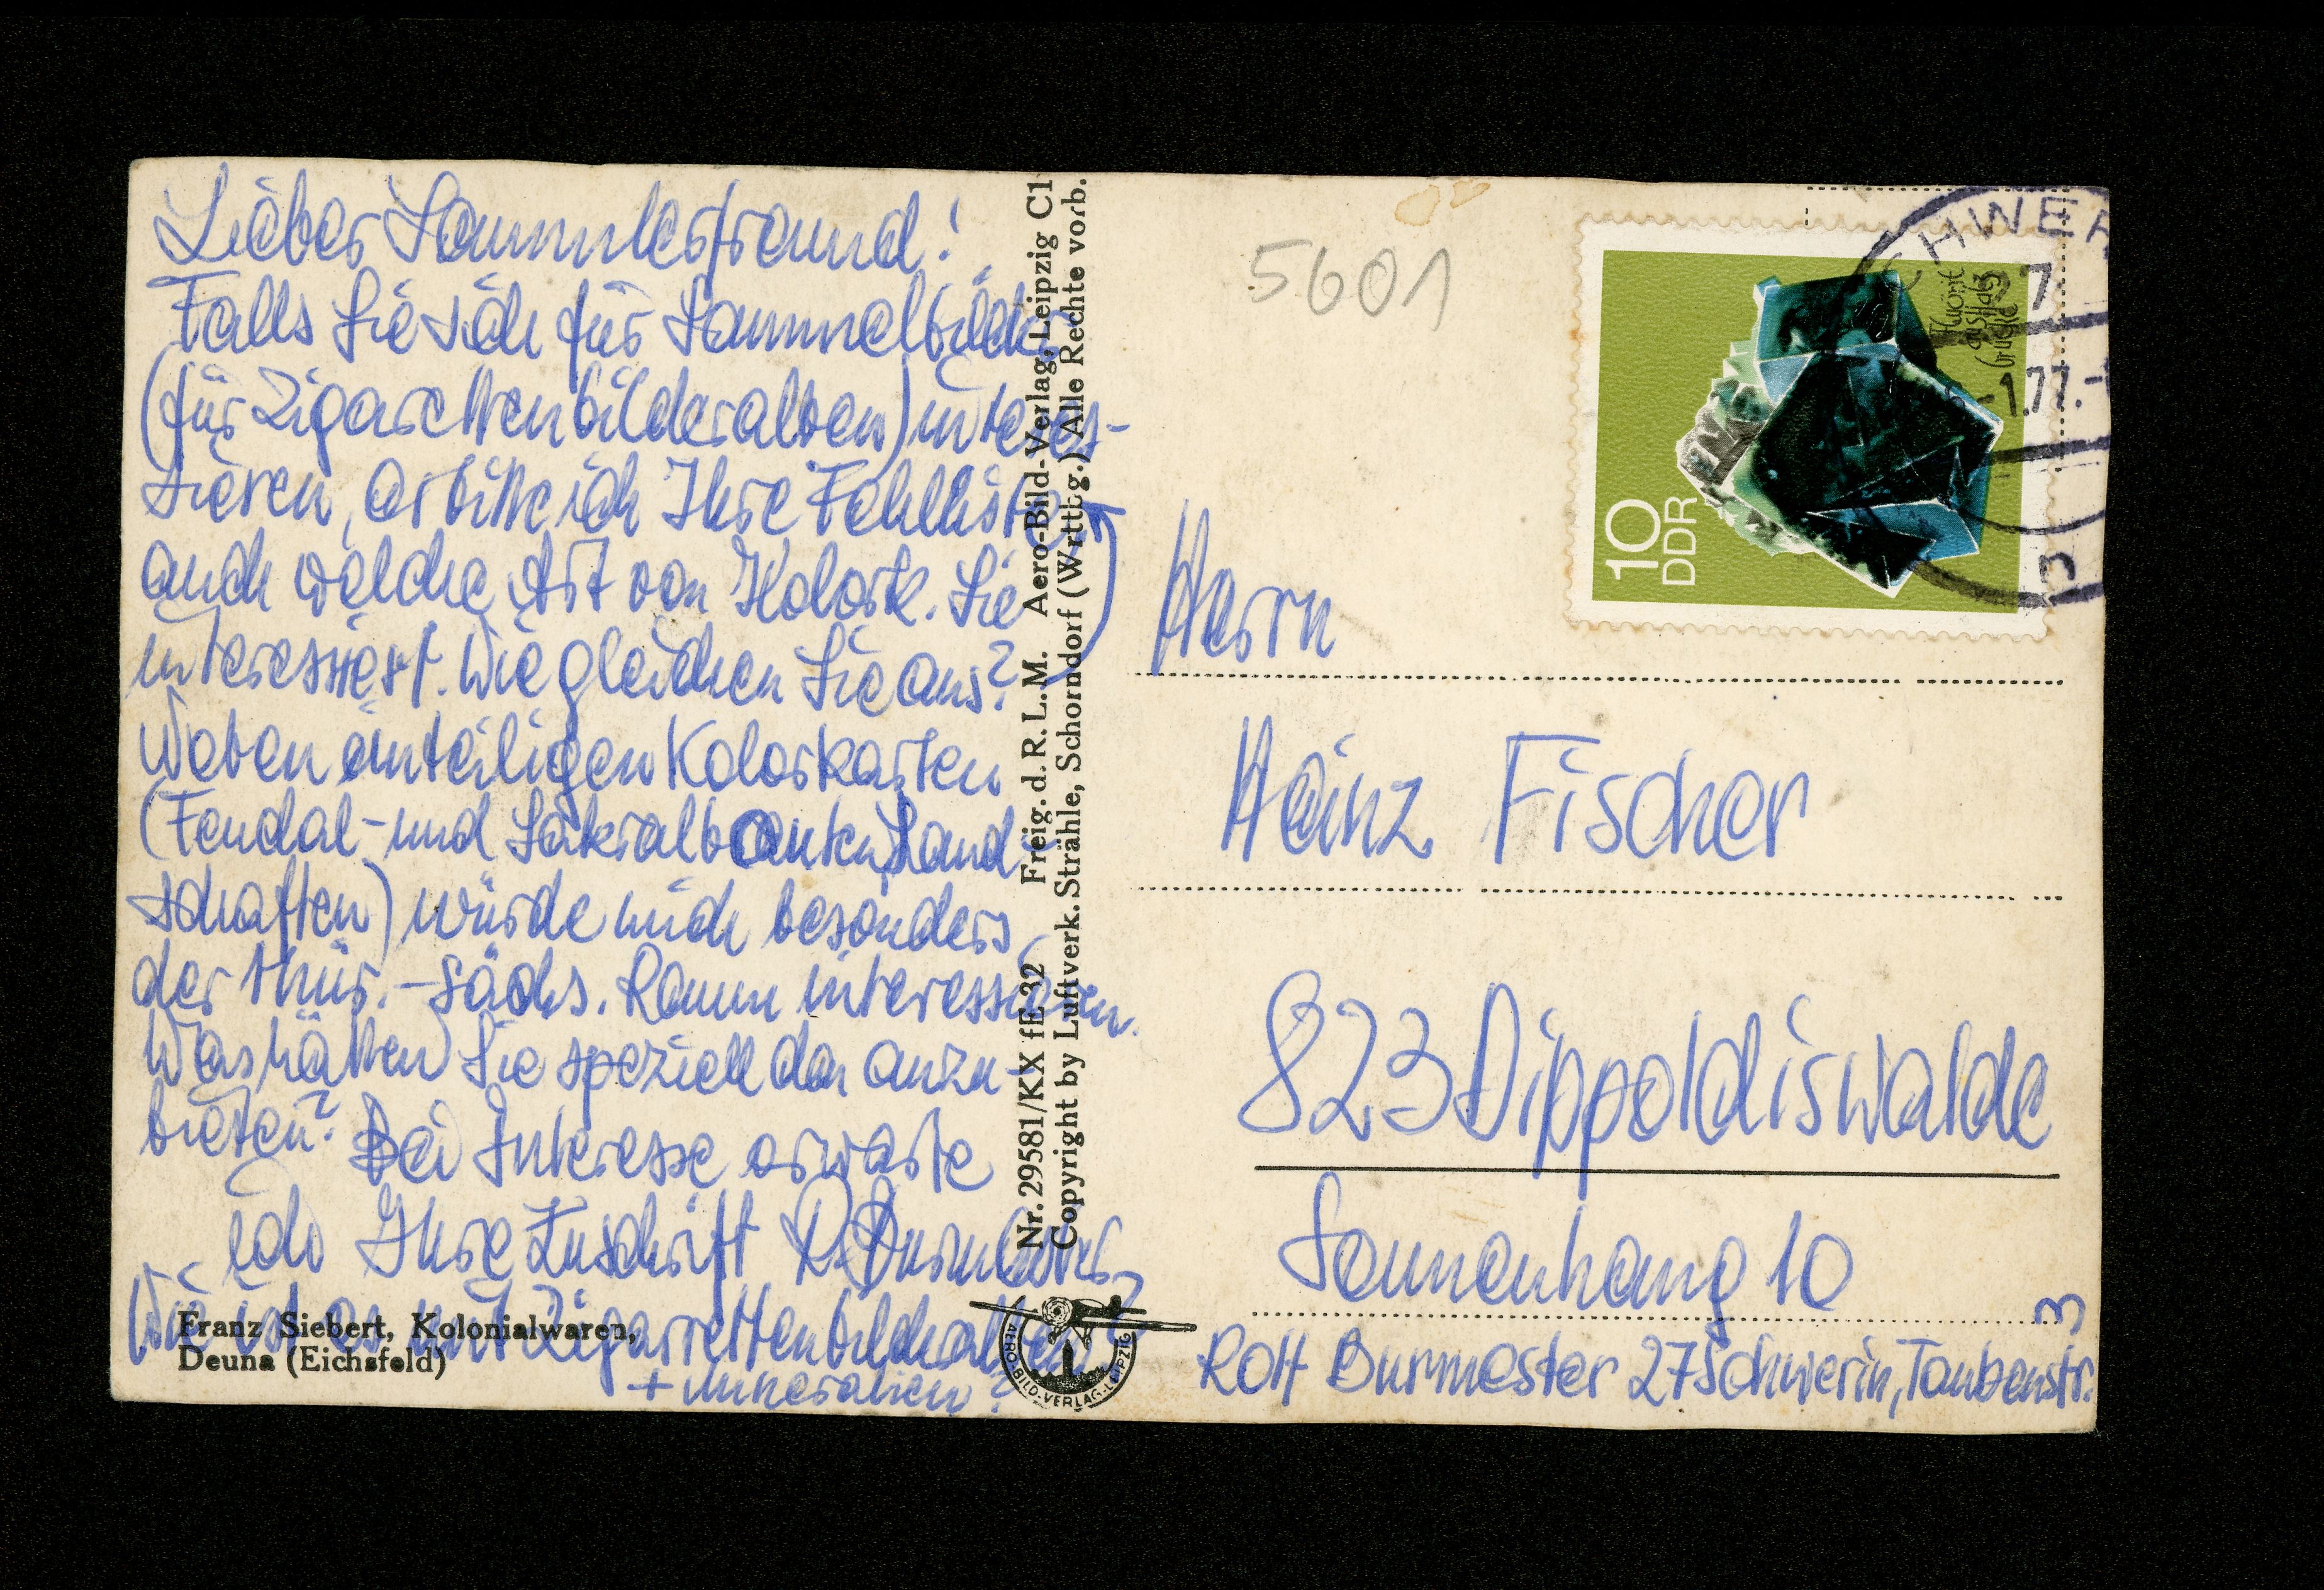 Lieber Sammlerfreund!
Falls Sie sich für Sammelbilder
(für Zigarettenbilderalben) interes-
sieren, erbitte ich Ihre Fehlliste,
auch welche Art von Kolork. Sie
interessiert. Wie gleichen Sie aus?
Neben einteiligen Kolorkarten
(Feudal- und Sakralbauten, Land-
schaften) würde mich besonders
der thür.-sächs. Raum interessieren.
Was hätten Sie speziell da anzu-
bieten? Bei Interesse erwarte
ich Ihre Zuschrift R. Burmester
Wie ist es mit Zigarettenbilderalben?
+ Mineralien?
Franz Siebert, Kolonialwaren,
Deuna (Eichsfeld)
Nr. 29581/KX fE 32 Freig. d. R. L. M. Aero-Bild-Verlag, Leipzig C1
Copyright by Luftverk. Strähle, Schorndorf (Wrttbg.) Alle Rechte vorb.
AERO-BILD-VERLAG-LEIPZIG
5601
10
DDR
Fluorit
CHWER
27
-1.77.-
Herrn
Heinz Fischer
823 Dippoldiswalde
Sonnenhang 10
Rolf Burmester 27 Schwerin, Taubenstr.
3